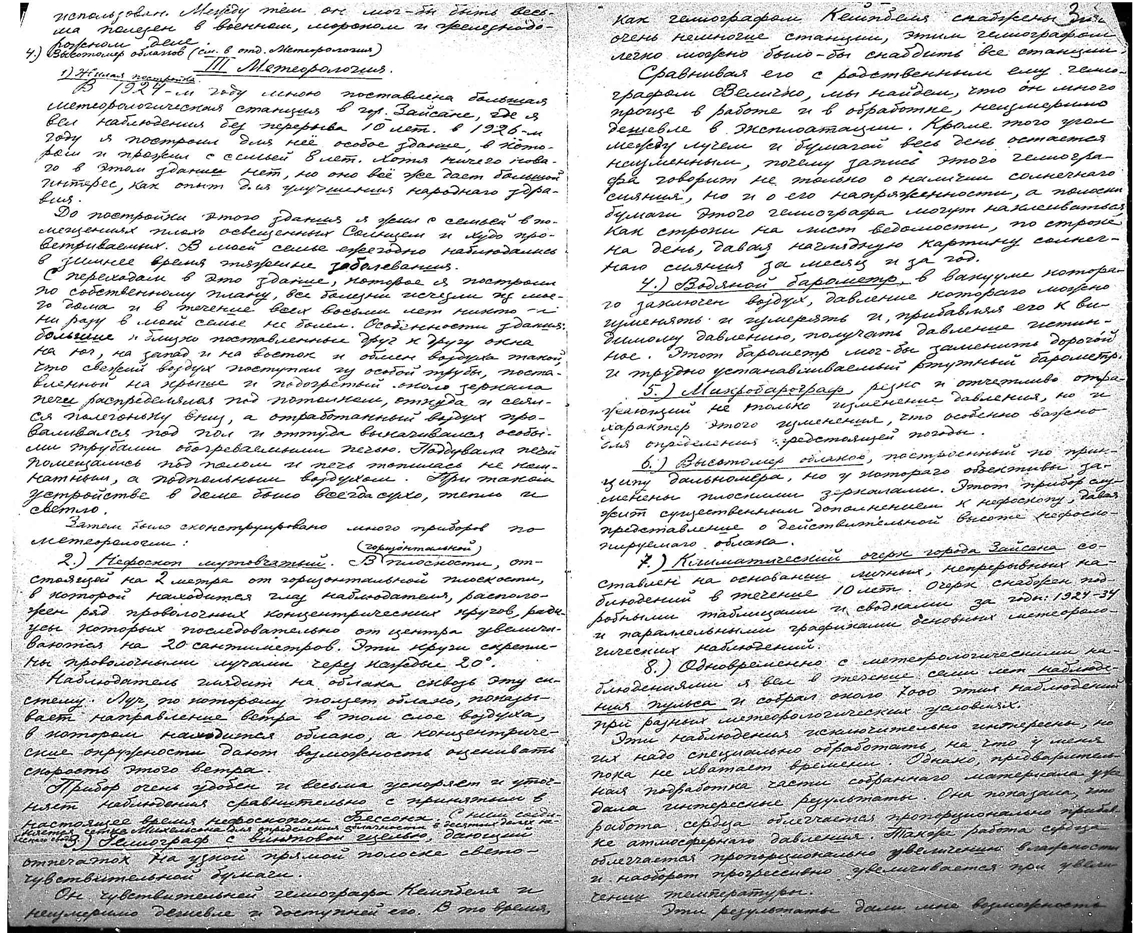 использован. Между тем он мог-бы быть весь-
ма полезен в военном, морском и железнодо-
рожном деле.
4.) Высотомер облаков (см. в отд. Метеорология)
III Метеорология.
1) Жилая постройка
В 1924-м году мною поставлена большая
метеорологическая станция в гор. Зайсане, где я
вел наблюдения без перерыва 10 лет. В 1926-м
году я построил для неё особое здание, в кото-
ром и прожил с семьей 8 лет. Хотя ничего нова-
го в этом здании нет, но оно всё же дает большой
интерес, как опыт для улучшения народного здра-
вия.
До постройки этого здания я жил с семьей в по-
мещениях плохо освещенных Солнцем и худо про-
ветриваемых. В моей семье ежегодно наблюдались
в зимнее время тяжелые заболевания.
С переходом в это здание, которое я построил
по собственному плану, все болезни исчезли из мое-
го дома и в течение всех восьми лет никто и
ни разу в моей семье не болел. Особенности здания:
большие и близко поставленные друг к другу окна
на юг, на запад и на восток и обмен воздуха такой,
что свежий воздух поступал из особой трубы, поста-
вленной на крыше и подогретый около зеркала
печи распределялся под потолком, откуда и селил-
ся полегоньку вниз, а отработанный воздух про-
валивался под пол и оттуда выкачивался особы-
ми трубами обогреваемыми печью. Поддувала печи
помещались под полом и печь топилась не ком-
натным, а подпольным воздухом. При таком
устройстве в доме было всегда сухо, тепло и
светло.
Затем было сконструировано много приборов по
метеорологии:
(горизонтальной)
2.) Нефоскоп мутовчатый. В плоскости, от-
стоящей на 2 метра от горизонтальной плоскости,
в которой находится глаз наблюдателя, располо-
жен ряд проволочных концентрических кругов, ради-
усы которых последовательно от центра увеличи-
ваются на 20 сантиметров. Эти круги скрепле-
ны проволочными лучами через каждые 20°.
Наблюдатель глядит на облака сквозь эту си-
стему. Луч, по которому ползет облако, показы-
вает направление ветра в том слое воздуха,
в котором находится облако, а концентриче-
ские окружности дают возможность оценивать
скорость этого ветра.
Прибор очень удобен и весьма ускоряет и уточ-
няет наблюдения сравнительно с принятым в
настоящее время нефоскопом Бессона. С ним соеди-
няется сетка Михельсона для определения облачности в десятых долях не-
бесного свода
3.) Гелиограф с винтовой щелью, дающий
отпечаток на узкой прямой полоске свето-
чувствительной бумаги.
Он чувствительней гелиографа Кемпбеля и
неизмеримо дешевле и доступней его. В то время,
3
как гелиографом Кемпбеля снабжены лишь
очень немногие станции, этим гелиографом
легко можно было-бы снабдить все станции.
Сравнивая его с родственным ему гелио-
графом Величко, мы найдем, что он много
проще в работе и в обработке, неизмеримо
дешевле в эксплоатации. Кроме того угол
между лучем и бумагой весь день остается
неизменным, почему запись этого гелиогра-
фа говорит не только о наличии солнечного
сияния, но и о его напряженности, а полоски
бумаги этого гелиографа могут наклеиваться
как строки на лист ведомости, по строке
на день, давая наглядную картину солнеч-
ного сияния за месяц и за год.
4.) Водяной барометр, в вакууме которо-
го заключен воздух, давление которого можно
изменять и измерять и, прибавляя его к ви-
димому давлению, получать давление истин-
ное. Этот барометр мог-бы заменить дорогой
и трудно устанавливаемый ртутный барометр.
5.) Микробарограф, резко и отчетливо отра-
жающий не только изменение давления, но и
характер этого изменения, что особенно важно
для определения предстоящей погоды.
6.) Высотомер облаков, построенный по прин-
ципу дальномера, но у которого объективы за-
менены плоскими зеркалами. Этот прибор слу-
жит существенным дополнением к нефоскопу, давая
представление о действительной высоте нефоско-
пируемого облака.
7.) Климатический очерк города Зайсана со-
ставлен на основании личных, непрерывных на-
блюдений в течение 10 лет. Очерк снабжен под-
робными таблицами и сводками за годы: 1924-34
и параллельными графиками основных метеороло-
гических наблюдений.
8.) Одновременно с метеорологическими на-
блюдениями я вел в течение семи лет наблюде-
ния пульса и собрал около 7000 этих наблюдений
при разных метеорологических условиях.
Эти наблюдения исключительно интересны, но
их надо специально обработать, на что у меня
пока не хватает времени. Однако, предваритель-
ная подработка части собранного материала уже
дала интересные результаты. Она показала, что
работа сердца облегчается пропорционально прибав-
ке атмосферного давления. Также работа сердца
облегчается пропорционально увеличению влажности
и наоборот прогрессивно увеличивается при увели-
чении температуры.
Эти результаты дали мне возможность